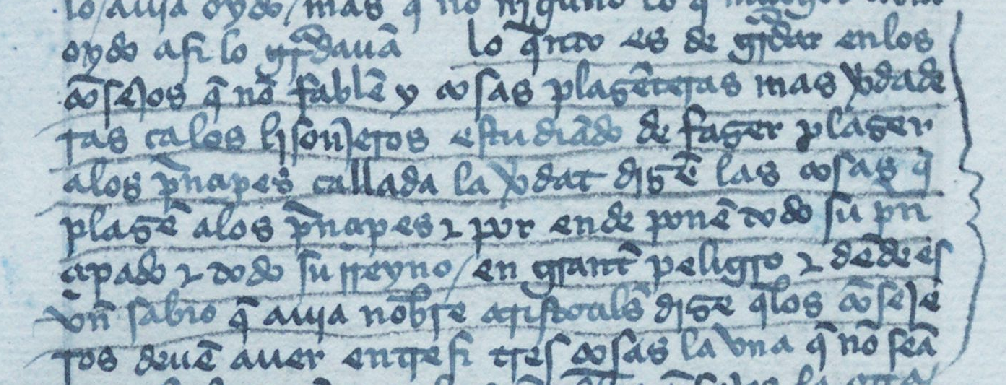 lo / auia oydo / mas q̃ no nĩguno lo q̃
oydo asi lo gr̃dauã lo q̃nto es de gr̃dar enlos
cõseios q̃ nõ fablẽ y cosas plazẽteras mas ṽdade
ras ca los lisonjeros estudiãdo de fazer plazer
alos prĩcipes callada la ṽdat dizẽ las cosas q̃
plazẽ alos prĩcipes ⁊ por ende ponẽ todo su prĩ
cipado ⁊ todo su rreyno / en grant̃ peligro ⁊ dẽde es
vñ sabio q̃ auia nobr̃e aristotals̃ dize q̃ los cõseje
ros deuẽ auer entresi tres cosas la vna q̃ nõ seã